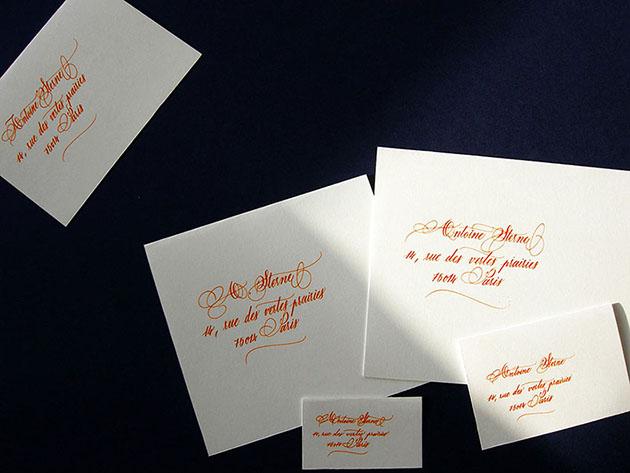 Antoine Sterne
14, rue des vertes prairies
75014 Paris
Antoine Sterne
14, rue des vertes prairies
75014 Paris
A. Sterne
14, rue des vertes prairies
75014 Paris
Antoine Sterne
14, rue des vertes prairies
75014 Paris
Antoine Sterne
14, rue des vertes prairies
75014 Paris